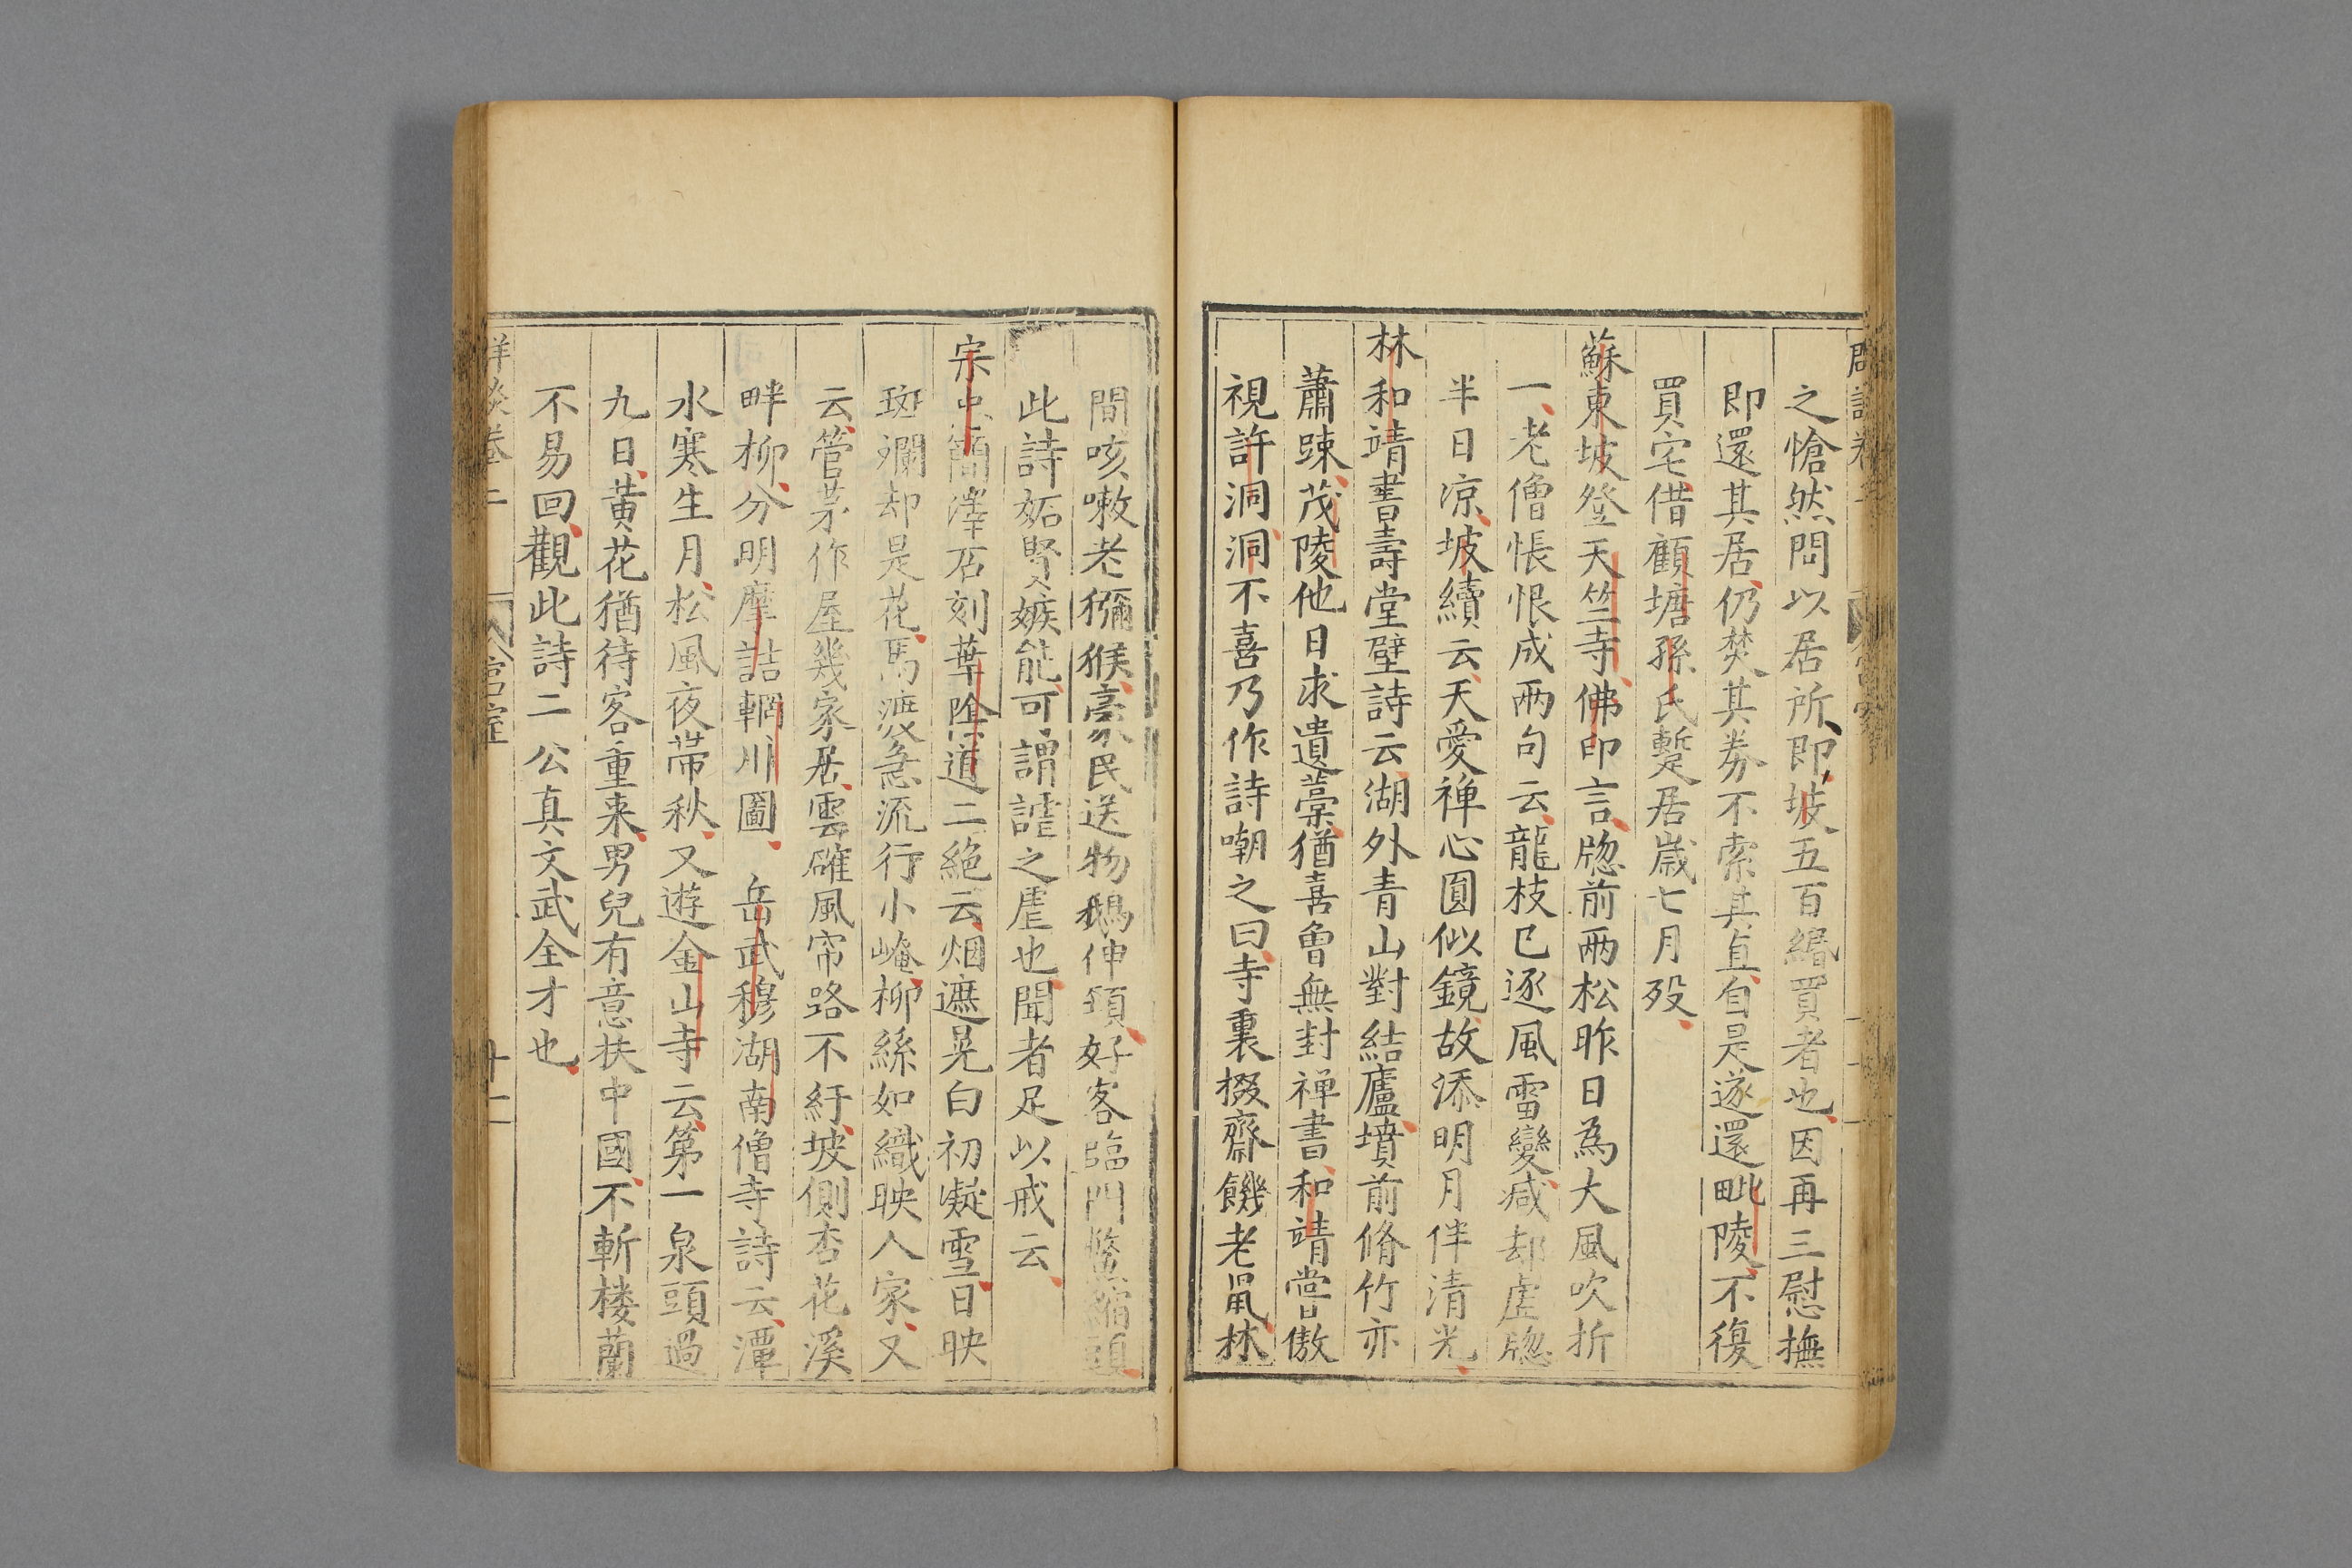 之愴然問以居所即坡五百緡買者也因再三慰撫
即還其居仍焚其券不索其直自是遂還毗陵不復
買宅借顧塘孫氏蹔居歲七月殁
蘇東坡登天竺寺佛印言牎前兩松昨日為大風吹折
一老僧悵恨成兩句云龍枝已逐風雷變减却虚牎
半日凉坡續云天愛禅心圓似鏡故添明月伴清光
林和靖書壽堂壁詩云湖外青山對結廬墳前脩竹亦
蕭踈茂陵他日求遺藁猶喜曾無封禅書和靖嘗傲
視許洞洞不喜乃作詩嘲之曰寺裏掇齋饑老鼠林
間咳嗽老獼猴豪民送物鵝伸頸好客臨門鱉縮頭
此詩妬賢嫉能可謂謔之虐也聞者足以戒云
宗忠簡澤石刻華陰道二絶云烟遮晃白初凝雪日映
斑斕却是花馬渡急流行小崦柳絲如織映人家又
云菅茅作屋幾家居雲碓風帘路不紆坡側杏花溪
畔柳分明摩詰輞川圖 岳武穆湖南僧寺詩云潭
水寒生月松風夜帶秋又遊金山寺云第一泉頭過
九日黄花猶待客重来男兒有意扶中國不斬楼蘭
不易回觀此詩二公真文武全才也